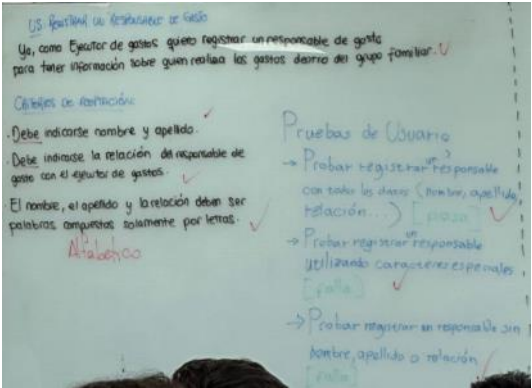 US: Registrar un Responsable de Gasto
Yo, como Ejecutor de gastos quiero registrar un responsable de gasto
para tener información sobre quien realiza los gastos dentro del grupo familiar.
Criterios de Aceptación:
· Debe indicarse nombre y apellido.
· Debe indicarse la relación del responsable de
gasto con el ejecutor de gastos.
· El nombre, el apellido y la relación deben ser
palabras compuestas solamente por letras.
Alfabético
Pruebas de Usuario
→ Probar registrar un responsable
con todos los datos (nombre, apellido,
relación...) [pasa]
→ Probar registrar un responsable
utilizando caracteres especiales
[falla]
→ Probar registrar un responsable sin
nombre, apellido o relación
[falla]